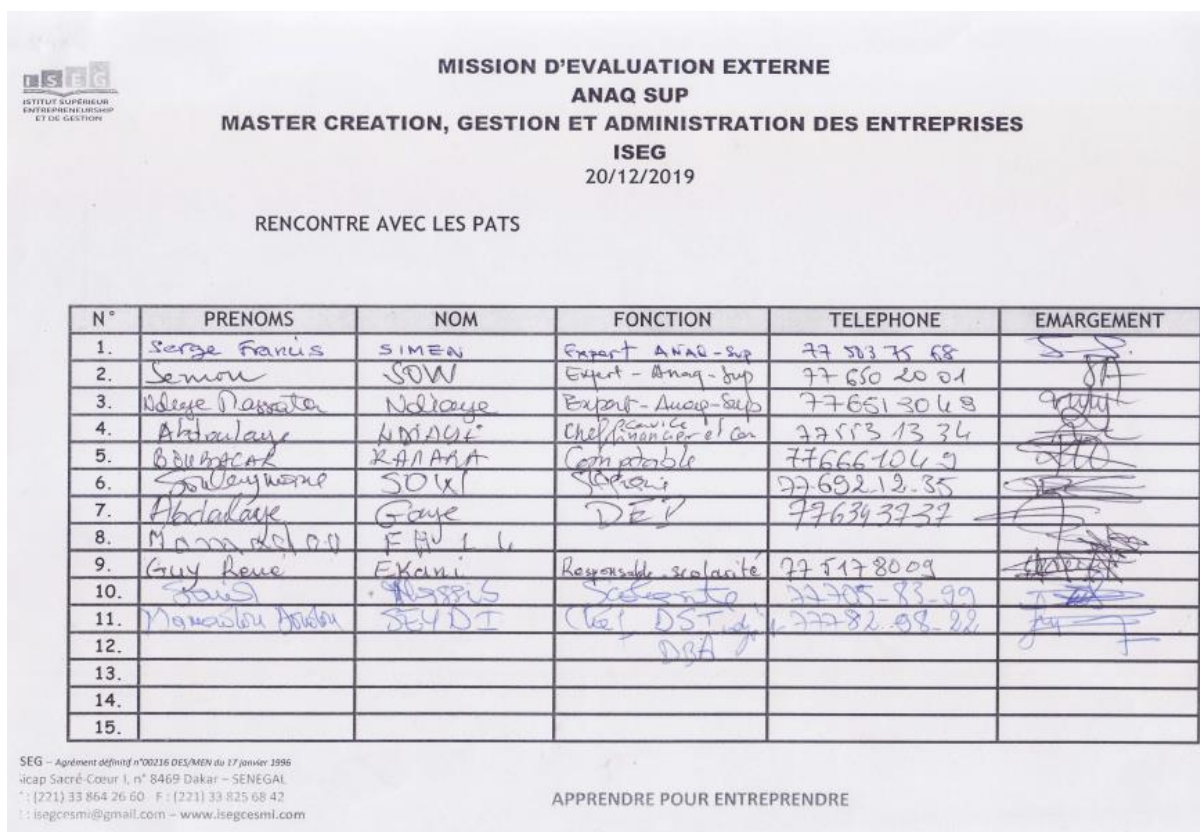 ISEG
ISTITUT SUPÉRIEUR
ENTREPRENEURSHIP
ET DE GESTION
MISSION D'EVALUATION EXTERNE
ANAQ SUP
MASTER CREATION, GESTION ET ADMINISTRATION DES ENTREPRISES
ISEG
20/12/2019
RENCONTRE AVEC LES PATS
N° PRENOMS NOM FONCTION TELEPHONE EMARGEMENT
1. Serge Francis SIMEN Expert ANAQ-Sup 77 503 75 68
2. Semou SOW Expert - Anaq-Sup 77 650 20 01
3. Ndeye Massata Ndiaye Expert - Anaq-Sup 776513049
4. Abdoulaye NDIAYE Chef service financier et 77553 13 34
5. BOUBACAR KAMARA Comptable 776661049
6. Souleymane SOW 77692.12.35
7. Abdalaye Gaye 776343737
8. Mamadou FALL
9. Guy René EKani Responsable scolarité 77 517 80 09
10. 77705-83-99
11. SEYDI Chef DST 77782.98-22
12. DBA
13.
14.
15.
SEG – Agrément définitif n°00216 DES/MEN du 17 janvier 1996
icap Sacré-Cœur I, n° 8469 Dakar – SENEGAL
: (221) 33 864 26 60 F : (221) 33 825 68 42
: isegcesmi@gmail.com – www.isegcesmi.com
APPRENDRE POUR ENTREPRENDRE